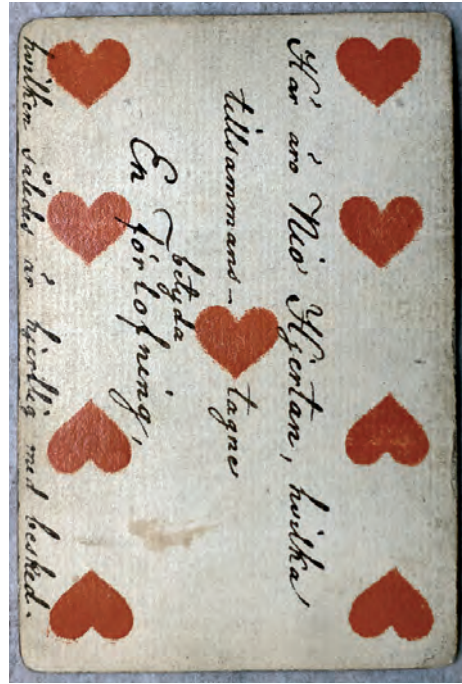 Här äro Nio Hjertan, hvilka
tillsammans-tagne
betyda
En Förlofning,
hvilken således är hjertlig med besked.